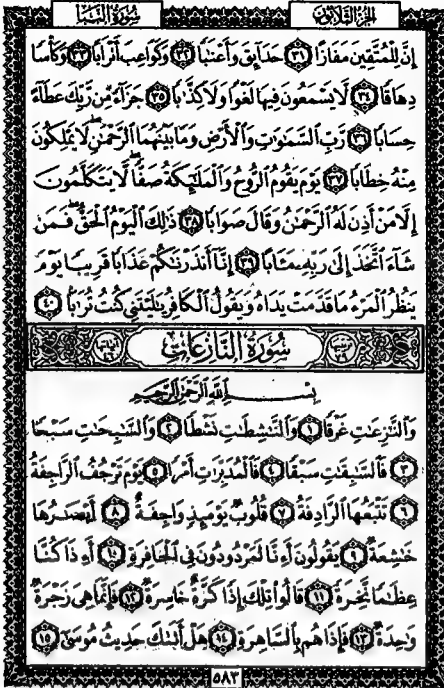 الجزء الثلاثون
سورة النبأ
إِنَّ لِلْمُتَّقِينَ مَفَازًا ٣١ حَدَآئِقَ وَأَعْنَٰبًا ٣٢ وَكَوَاعِبَ أَتْرَابًا ٣٣ وَكَأْسًا
دِهَاقًا ٣٤ لَّا يَسْمَعُونَ فِيهَا لَغْوًا وَلَا كِذَّٰبًا ٣٥ جَزَآءً مِّن رَّبِّكَ عَطَآءً
حِسَابًا ٣٦ رَّبِّ ٱلسَّمَٰوَٰتِ وَٱلْأَرْضِ وَمَا بَيْنَهُمَا ٱلرَّحْمَٰنِ لَا يَمْلِكُونَ
مِنْهُ خِطَابًا ٣٧ يَوْمَ يَقُومُ ٱلرُّوحُ وَٱلْمَلَٰٓئِكَةُ صَفًّا لَّا يَتَكَلَّمُونَ
إِلَّا مَنْ أَذِنَ لَهُ ٱلرَّحْمَٰنُ وَقَالَ صَوَابًا ٣٨ ذَٰلِكَ ٱلْيَوْمُ ٱلْحَقُّ فَمَن
شَآءَ ٱتَّخَذَ إِلَىٰ رَبِّهِۦ مَـَٔابًا ٣٩ إِنَّآ أَنذَرْنَٰكُمْ عَذَابًا قَرِيبًا يَوْمَ
يَنظُرُ ٱلْمَرْءُ مَا قَدَّمَتْ يَدَاهُ وَيَقُولُ ٱلْكَافِرُ يَٰلَيْتَنِى كُنتُ تُرَٰبًۢا ٤٠
سورة النازعات
بِسْمِ ٱللَّهِ ٱلرَّحْمَٰنِ ٱلرَّحِيمِ
وَٱلنَّٰزِعَٰتِ غَرْقًا ١ وَٱلنَّٰشِطَٰتِ نَشْطًا ٢ وَٱلسَّٰبِحَٰتِ سَبْحًا
٣ فَٱلسَّٰبِقَٰتِ سَبْقًا ٤ فَٱلْمُدَبِّرَٰتِ أَمْرًا ٥ يَوْمَ تَرْجُفُ ٱلرَّاجِفَةُ
٦ تَتْبَعُهَا ٱلرَّادِفَةُ ٧ قُلُوبٌ يَوْمَئِذٍ وَاجِفَةٌ ٨ أَبْصَٰرُهَا
خَٰشِعَةٌ ٩ يَقُولُونَ أَءِنَّا لَمَرْدُودُونَ فِى ٱلْحَافِرَةِ ١٠ أَءِذَا كُنَّا
عِظَٰمًا نَّخِرَةً ١١ قَالُوا۟ تِلْكَ إِذًا كَرَّةٌ خَاسِرَةٌ ١٢ فَإِنَّمَا هِىَ زَجْرَةٌ
وَٰحِدَةٌ ١٣ فَإِذَا هُم بِٱلسَّاهِرَةِ ١٤ هَلْ أَتَىٰكَ حَدِيثُ مُوسَىٰٓ ١٥
٥٨٣